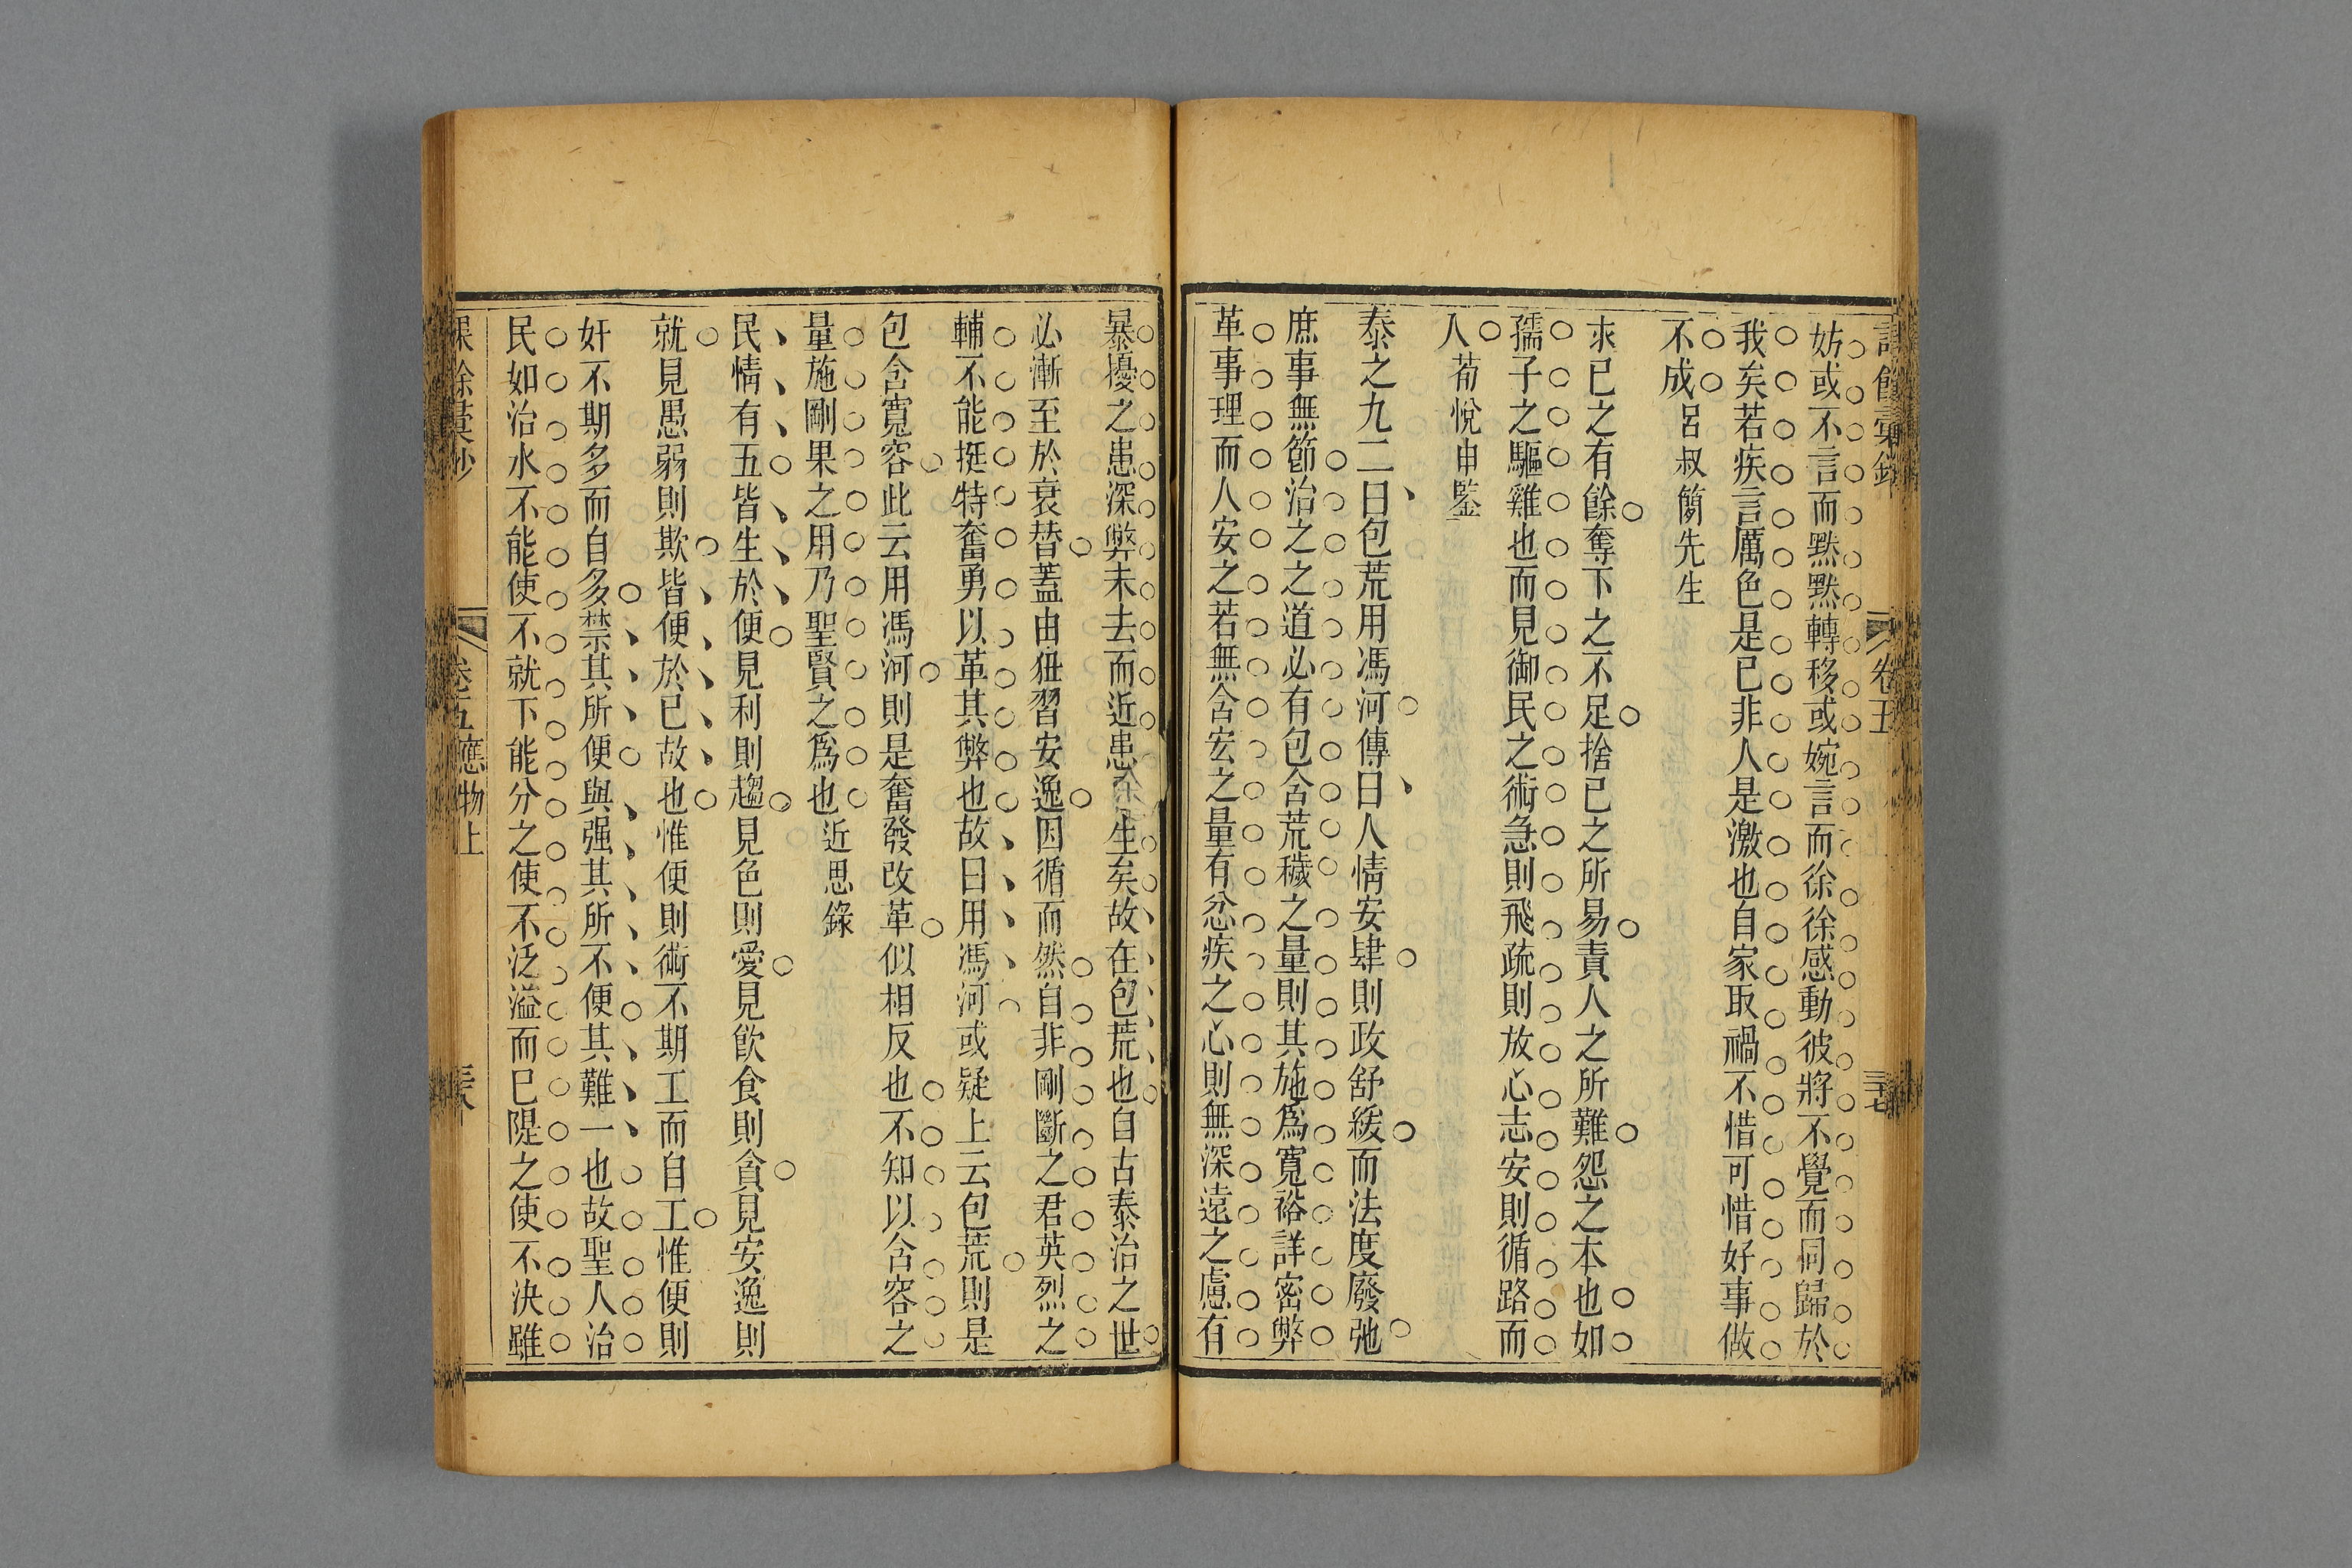 卷五
三十七
妨或不言而默默轉移或婉言而徐徐感動彼將不覺而同歸於
我矣若疾言厲色是已非人是激也自家取禍不惜可惜好事做
不成呂叔簡先生
求已之有餘奪下之不足捨已之所易責人之所難怨之本也如
孺子之驅雞也而見御民之術急則飛疏則放心志安則循路而
人荀悅申鑒
泰之九二曰包荒用馮河傳曰人情安肆則政舒緩而法度廢弛
庶事無節治之之道必有包含荒穢之量則其施爲寬裕詳密弊
革事理而人安之若無含宏之量有忿疾之心則無深遠之慮有
暴擾之患深弊未去而近患生矣故在包荒也自古泰治之世
必漸至於衰替蓋由狃習安逸因循而然自非剛斷之君英烈之
輔不能挺特奮勇以革其弊也故曰用馮河或疑上云包荒則是
包含寬容此云用馮河則是奮發改革似相反也不知以含容之
量施剛果之用乃聖賢之爲也近思錄
民情有五皆生於便見利則趨見色則愛見飮食則貪見安逸則
就見愚弱則欺皆便於已故也惟便則術不期工而自工惟便則
奸不期多而自多禁其所便與强其所不便其難一也故聖人治
民如治水不能使不就下能分之使不泛溢而已隄之使不決雖
卷五應物上